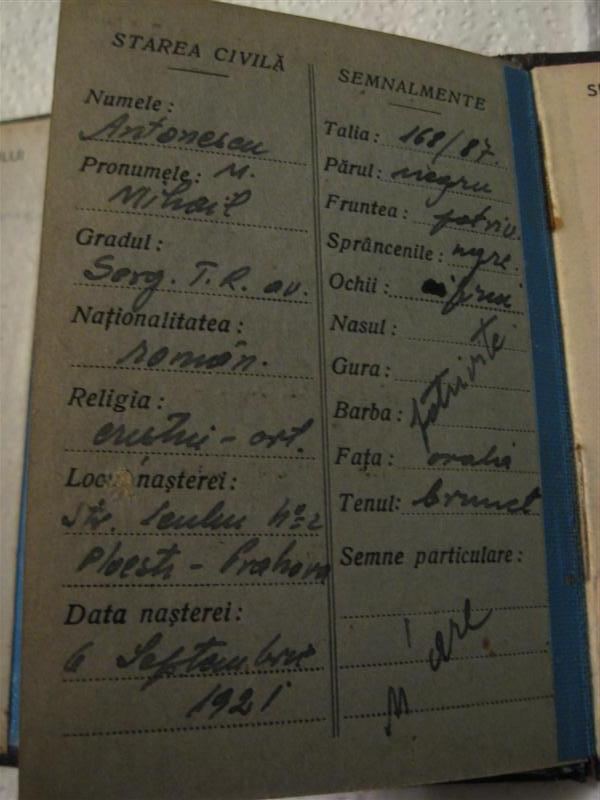 STAREA CIVILĂ
Numele:
Antonescu
Pronumele: M.
Mihail
Gradul:
Serg. T.R. av.
Naționalitatea:
român.
Religia:
ort.
Locul nașterei:
Str. No 2
Ploesti - Prahova
Data nașterei:
6 Septembrie
1921
SEMNALMENTE
Talia: 168/87.
Părul: negru
Fruntea: potriv.
Sprâncenile: negre.
Ochii:
Nasul:
Gura: potrivite
Barba:
Fața: ovală
Tenul: brunet
Semne particulare:
N'are